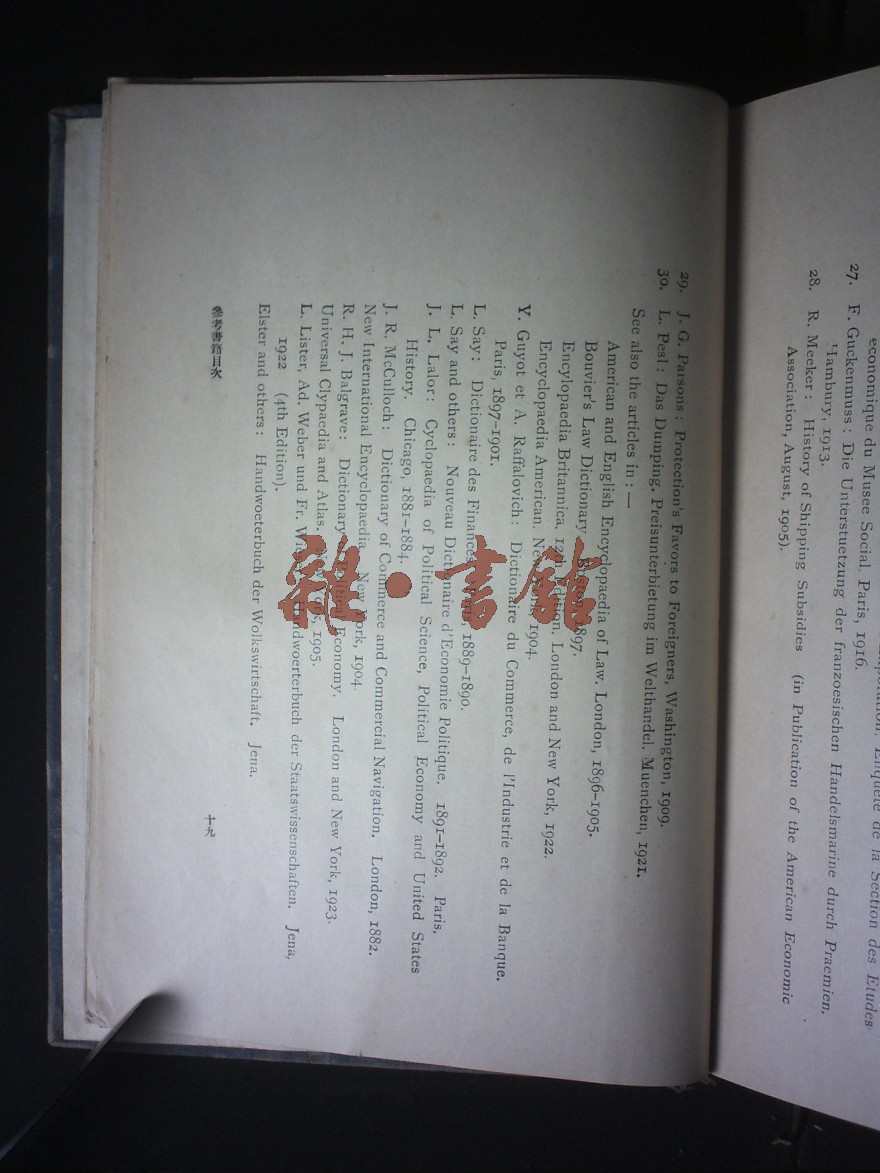 economique du Musee Social, Paris, 1916.
27. F. Guckenmuss: Die Unterstuetzung der franzoesischen Handelsmarine durch Praemien.
Hambury, 1913.
28. R. Meeker: History of Shipping Subsidies (in Publication of the American Economic
Association, August, 1905).
29. J. G. Parsons: Protection's Favors to Foreigners, Washington, 1909.
30. L. Pesl: Das Dumping. Preisunterbietung im Welthandel. Muenchen, 1921.
See also the articles in:—
American and English Encyclopaedia of Law. London, 1896-1905.
Bouvier's Law Dictionary 1897.
Encylopaedia Britannica. Edition. London and New York, 1922.
Encyclopaedia American. 1904.
Y. Guyot et A. Raffalovich: Dictionaire du Commerce, de l'Industrie et de la Banque.
Paris, 1897-1901.
L. Say: Dictionaire des Finances 1889-1890.
L. Say and others: Nouveau Dictionaire d'Economie Politique. 1891-1892. Paris.
J. L. Lalor: Cyclopaedia of Political Science, Political Economy and United States
History. Chicago, 1881-1884.
J. R. McCulloch: Dictionary of Commerce and Commercial Navigation. London, 1882.
New International Encyclopaedia New York, 1904.
R. H. J. Balgrave: Dictionary Political Economy. London and New York, 1923.
Universal Clypaedia and Atlas. 1905.
L. Lister, Ad. Weber und Fr. Handwoerterbuch der Staatswissenschaften. Jena,
1922 (4th Edition).
Elster and others: Handwoeterbuch der Wolkswirtschaft. Jena.
參考書籍目次
十九